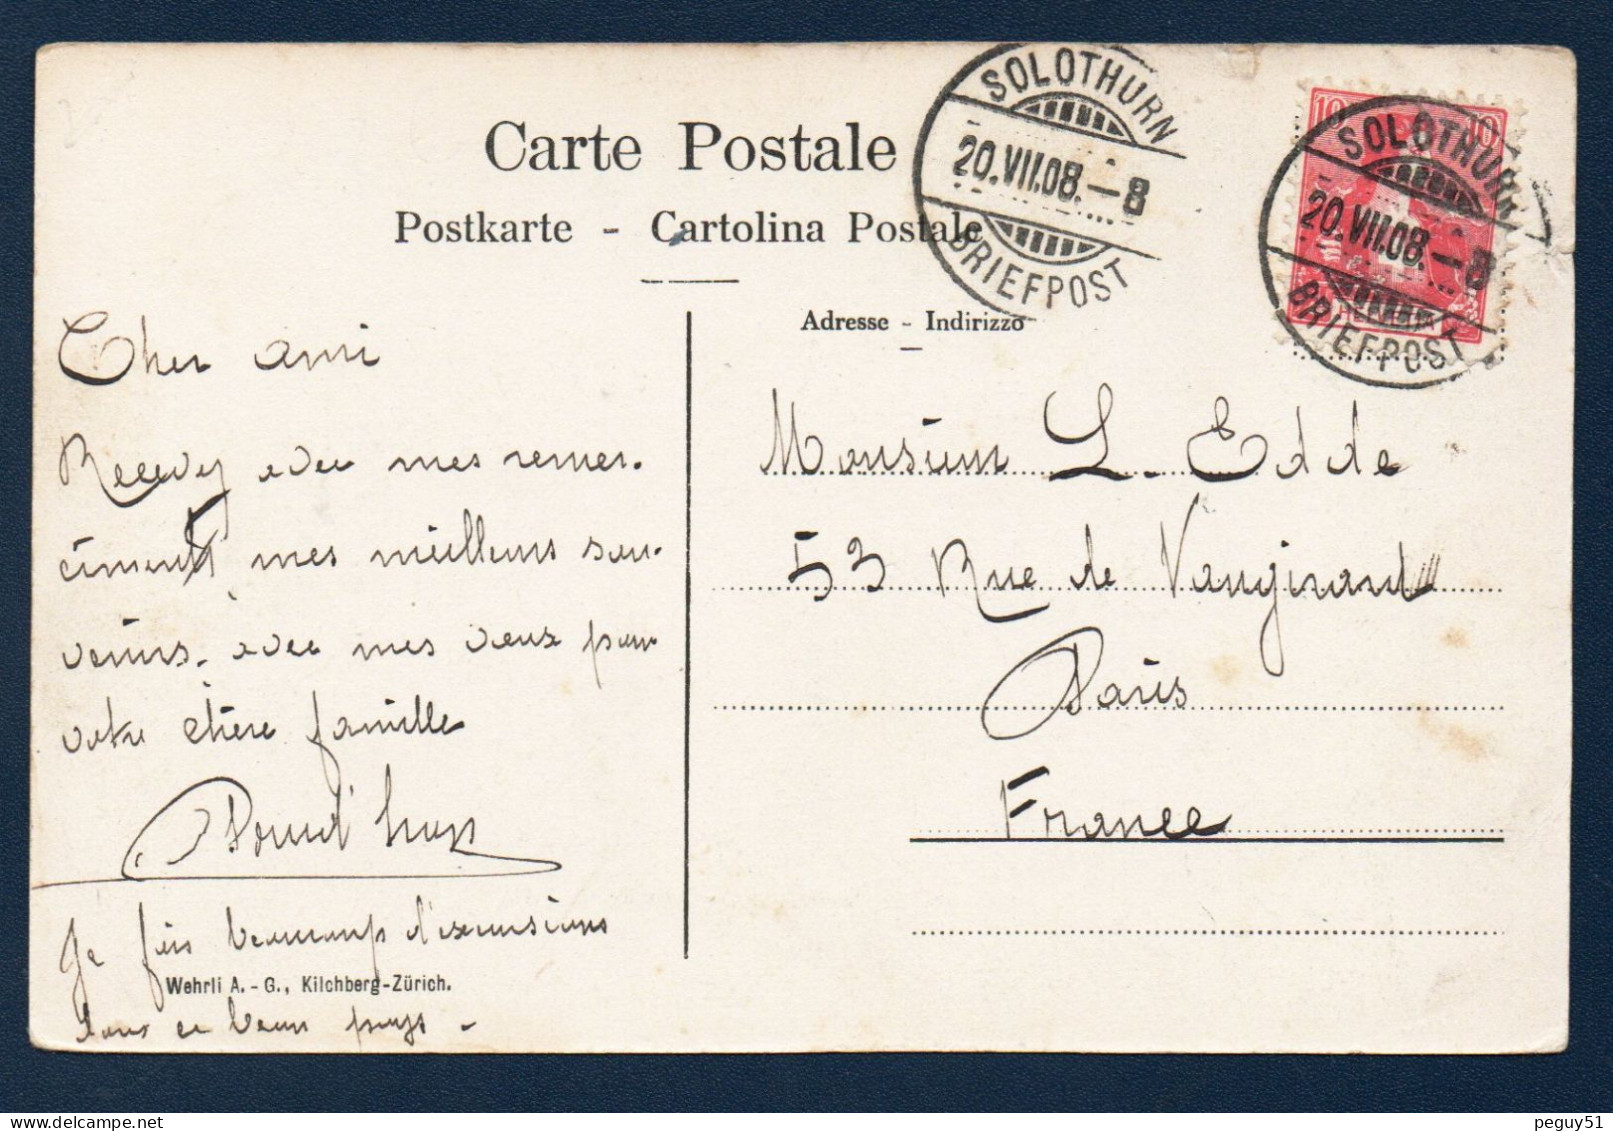 Carte Postale
Postkarte - Cartolina Postale
SOLOTHURN
20.VII.08.-8
BRIEFPOST
10 10
HELVETIA
SOLOTHURN
20.VII.08.-8
BRIEFPOST
Adresse - Indirizzo
Cher ami
Recevez avec mes remer-
ciments, mes meilleurs sou-
venirs. avec mes vœux pour
votre chère famille
Je fais beaucoup d'excursions
dans ce beau pays -
Wehrli A.-G., Kilchberg-Zürich.
Monsieur L. Edde
53 Rue de Vaugirard
Paris
France
peguy51